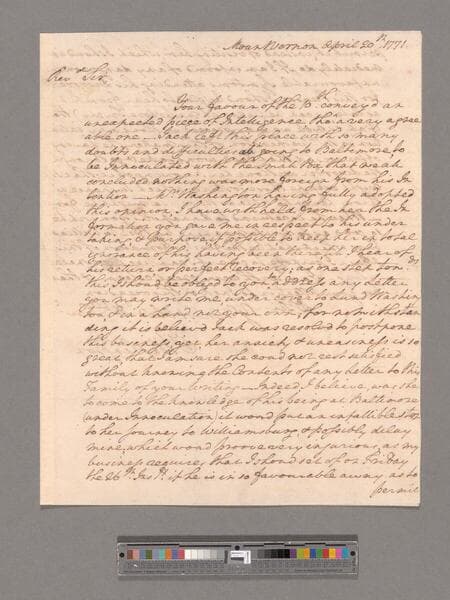 Mount Vernon April 20th. 1771.
Revd. Sir,
Your favour of the            convey'd an
unexpected piece of Intelligence tho' a very agree
able one — Jack left this place with so many
doubts and difficulties             going to Baltimore to
be Innoculated with the small Pox that            
concluded nothing was more foreign from his In
tention — Mrs. Washington having fully adopted
this opinion, I have withheld from her the In
formation you gave me in respect to his under
taking & purpose if possible to keep her in total
ignorance of his having been there till I hear of
his return, or perfect recovery; as one step to wds.
this, I should be obliged to you to address any letter
you may write me under cover to Lund Washing
ton & in a hand not your own; for notwithstan
ding it is believed Jack was resolvd to postpone
this business, yet her anxiety & uneasiness is so
great that I am sure she coud not rest satisfied
without knowing the Contents of any letter to this
Family of your Writing — Indeed I believe, was she
to come to the knowledge of his being at Baltimore
under Innoculation, it woud put an infallible stop
to her journey to Williamsburg & possibly delay
mine, which woud proove very injurious, as my
business requires that I shoud set of on Friday
the 26th. Inst. if he is in so favourable a way as to
permit